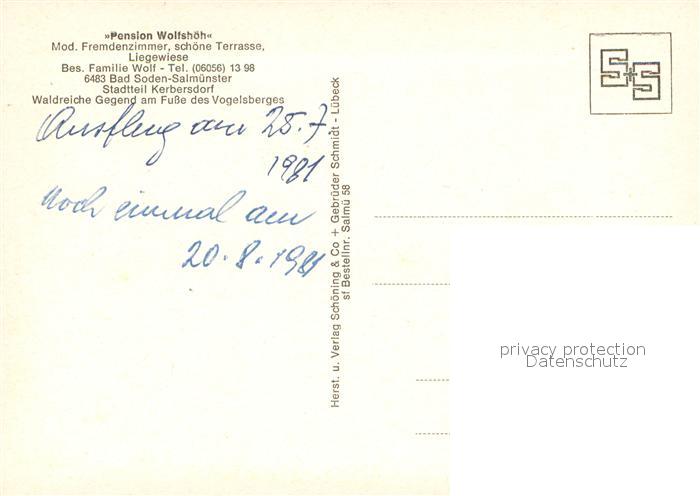 »Pension Wolfshöh«
Mod. Fremdenzimmer, schöne Terrasse,
Liegewiese
Bes. Familie Wolf - Tel. (06056) 13 98
6483 Bad Soden-Salmünster
Stadtteil Kerbersdorf
Waldreiche Gegend am Fuße des Vogelsberges
Ausflug am 25.7.
1981
Noch einmal am
20.8.1981
Herst. u. Verlag Schöning & Co + Gebrüder Schmidt - Lübeck
sf Bestellnr. Salmü 58
S+S
privacy protection
Datenschutz